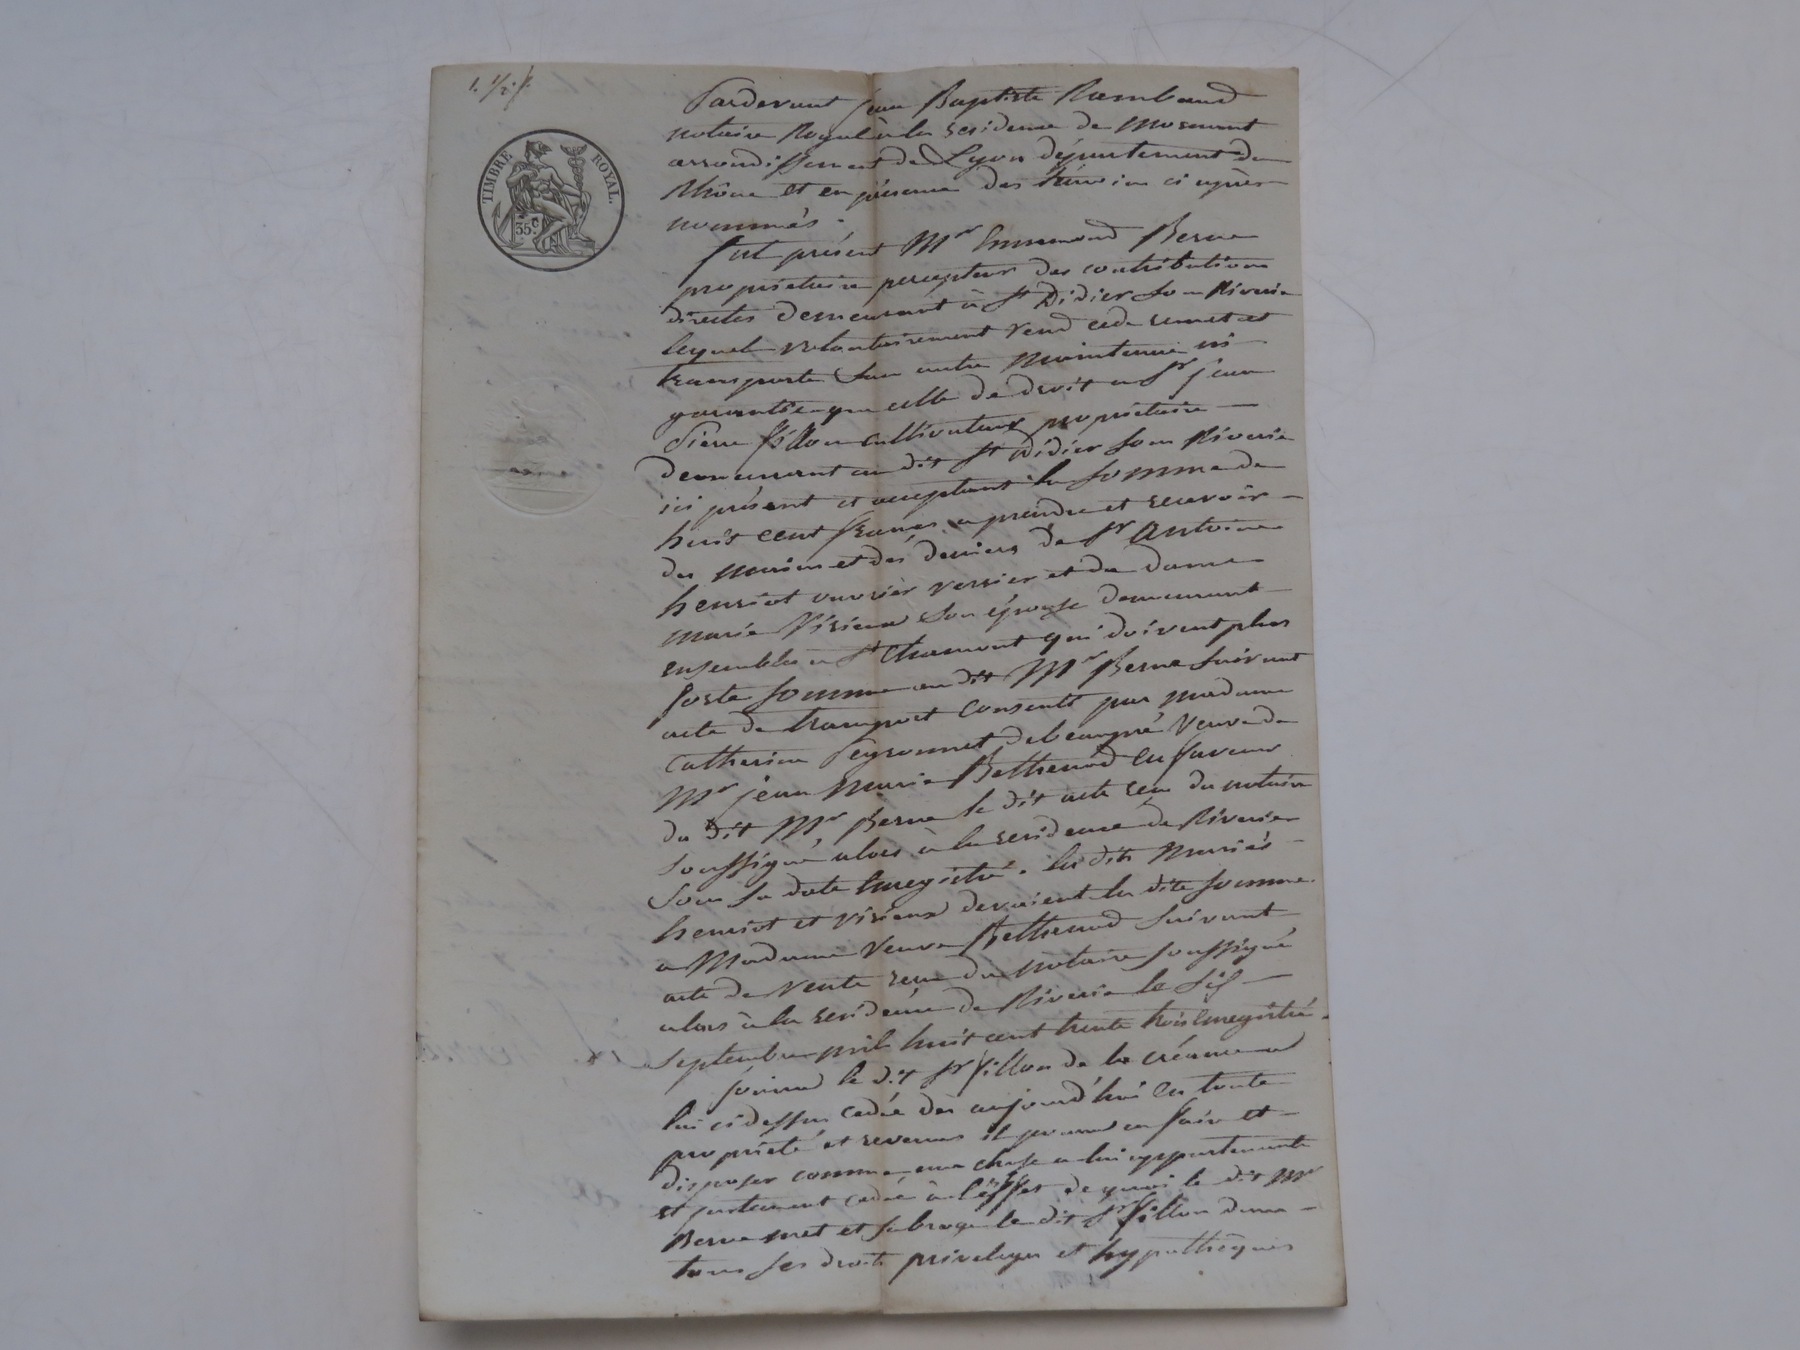 1. 1/2 f.
TIMBRE ROYAL.
35 c
Pardevant jean Baptiste Rambaud
notaire Royal à la residence de Mornant
arrondissement de Lyon département du
Rhône et en présence des témoins ci après
nommés.
fut présent Mr Ennemond Berne
propriétaire percepteur des contributions
directes demeurant à St Didier sous Riverie
lequel volontairement vend cede remet et
transporte sans autre maintenue ni
garantie que celle de droit a Sr jean
Pierre fillon cultivateur propriétaire
demeurant au dit St Didier sous Riverie
ici présent et acceptant la somme de
huit cent francs a prendre et recevoir
des mains et des deniers de Sr Antoine
henriot ouvrier verrier et de dame
marie Virieux son épouse demeurant
ensemble a St Chamont qui doivent plus
forte somme au dit Mr Berne suivant
acte de transport consenti par madame
Catherine Peyronnet debeaupré veuve de
Mr jean Marie Bethenod en faveur
du dit Mr Berne le dit acte reçu du notaire
soussigné alors à la residence de Riverie
sous sa date Enregistré. les dits mariés
henriot et virieux devaient la dite somme
a Madame veuve Bethenod suivant
acte de vente reçu du notaire soussigné
alors à la residence de Riverie le six
septembre mil huit cent trente trois Enregistré.
jouira le dit Sr fillon de la créance
lui ci dessus cedée dès aujourd'hui en toute
propriété et revenus il pourra en faire et
disposer comme une chose a lui appartenante
et justement cedée à l'effet de quoi le dit Mr
Berne met et subroge le dit Sr fillon dans
tous ses droits privileges et hypothèques